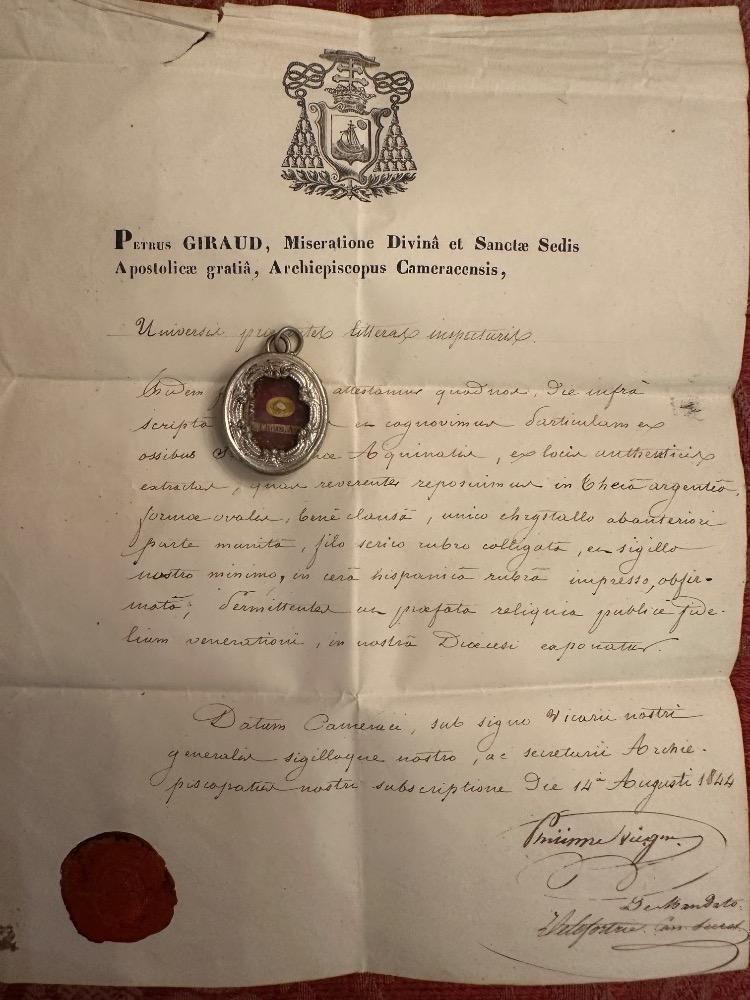 PETRUS GIRAUD, Miseratione Divinâ et Sanctæ Sedis
Apostolicæ gratiâ, Archiepiscopus Cameracensis,
Universis litteras inspecturis.
Fidem attestamur quod nos, die infrà
scripta recognovimus Particulam ex
ossibus Aquinatis, ex locis authenticis
extractas, quas reverenter reposuimus in thecâ argenteâ,
formæ ovalis, benè clausâ, unico chrystallo ab anteriori
parte munitâ, filo serico rubro colligatâ, et sigillo
nostro minimo, in cerâ hispanicâ rubrâ impresso, obfir-
matâ; Permittentes ut præfata reliquia publicè fide-
lium venerationi, in nostrâ Diœcesi exponatur.
Datum Cameraci, sub signo Vicarii nostri
generalis sigilloque nostro, ac secretarii Archie-
piscopatûs nostri subscriptione Die 14â Augusti 1844
De Mandato